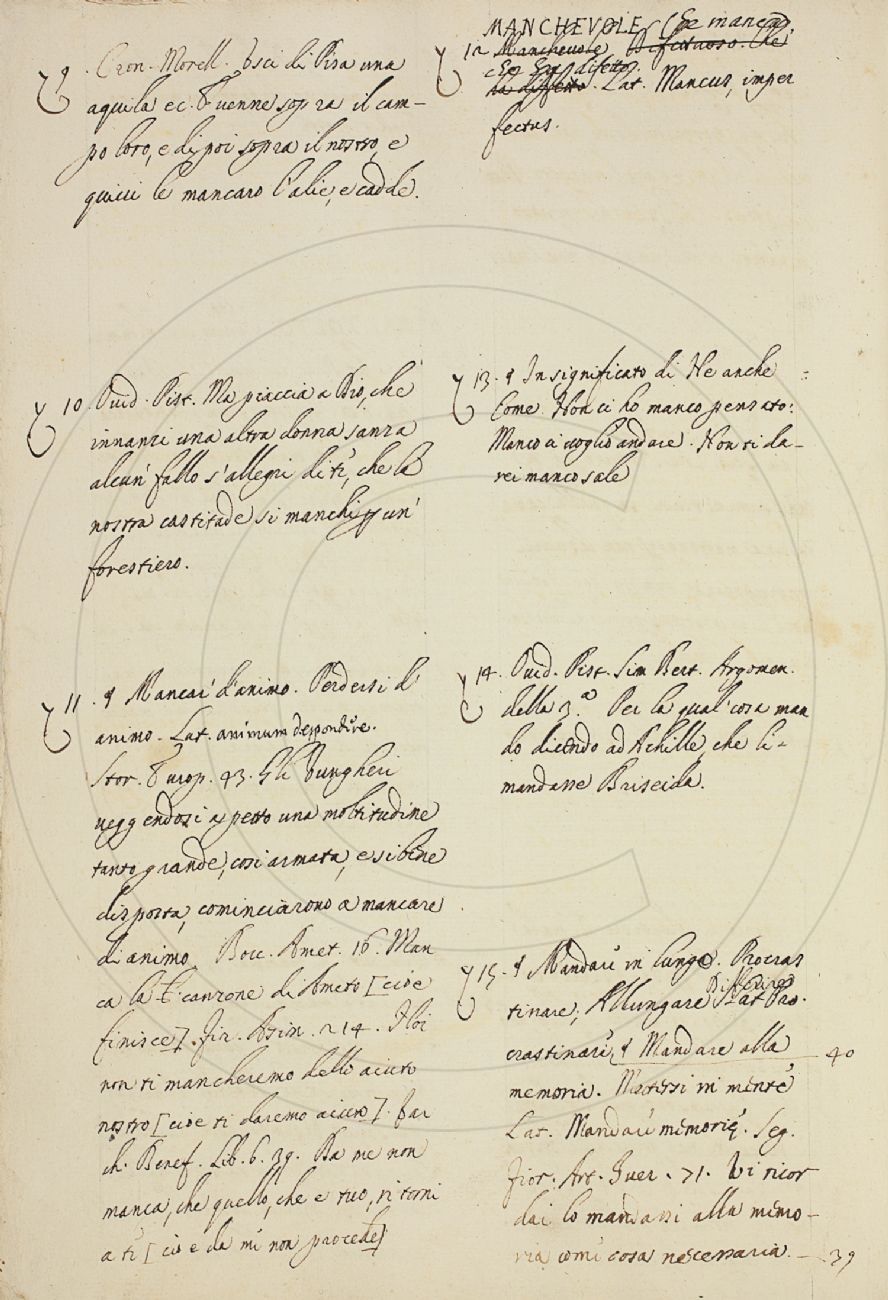 9. Cron. Morell. Uscì di Pisa una
aquila ec. E venne sopra il cam-
po loro, e di poi sopra il nostro, e
quivi le mancaro l'alie, e cadde.
10 Ovid. Pist. Ma piaccia a Dio, che
innanzi una altra donna sanza
alcun' fallo s'allegri di te', che la
nostra castitade si manchi p un'
forestiero.
11. § Mancar' d'animo. Perdersi d'
animo. Lat. animum despondere.
Stor. Europ. 43. Gli Vungheri
veggendosi a petto una moltitudine
tanto grande, così armata, e si bene
disposta, cominciarono a mancare
di animo. Bocc. Amet. 16. Man
ca la canzone di Ameto [cioè
finisce]. Fir. Asin. 214. Noi
non ti mancheremo dello aiuto
nostro [cioè ti daremo aiuto]. Var
ch. Benef. Lib. 6. 39. Da me non
manca, che quello, che è tuo, ritorni
a te' [cioè da me non procede]
MANCHEVOLE
12 Manchevole Difettuoso. Che
difetto
ha difetto. Lat. Mancus, imper
fectus.
13. § In significato di Ne anche
Come Non ci ho manco pensato:
Manco ci voglio andare. Non ti da-
rei manco sale
14. Ovid. Pist. Sim Bert. Argomen.
della 3.ª Per la qual' cosa man
do dicendo ad Achille, che li-
mandasse Briseida.
15. § Mandare in lungo. Procras
Differire
tinare, Allungare Lat. Pro.
crastinare, § Mandare alla 40
memoria. Mettersi in mente
Lat. Mandare memorię. Seg.
Fior. Art. Guer. 71. Vi ricor
dai lo mandassi alla memo-
ria come cosa necessaria. 39